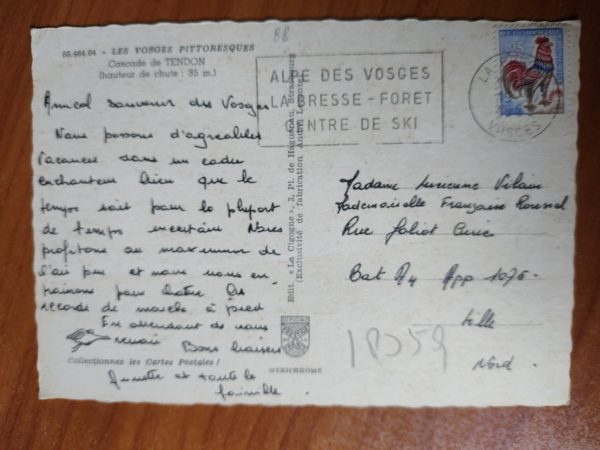 88
88.464.04 - LES VOSGES PITTORESQUES
Cascade de TENDON
(hauteur de chute : 35 m.)
Amical souvenir des Vosges
Nous passons d'agréables
vacances dans un cadre
enchanteur bien que le
temps soit pour la plupart
de temps incertain Nous
profitons au maximum de
l'air pur et nous nous en
trainons pour battre les
records de marche à pied
En attendant de vous
revoir Bons baisers
Collectionnez les Cartes Postales !
Annette et toute la
famille
Edit. « La Cigogne », 3, Pl. de Haguenau, Strasbourg
(Exclusivité de fabrication André Leconte)
MEXICHROME
ALPE DES VOSGES
LA BRESSE - FORET
CENTRE DE SKI
0,25
LA BRESSE
VOSGES
Madame Lucienne Vilain
Mademoiselle Françoise Roussel
Rue Joliot Curie
Bat A4 App 1075
Lille
Nord
18359